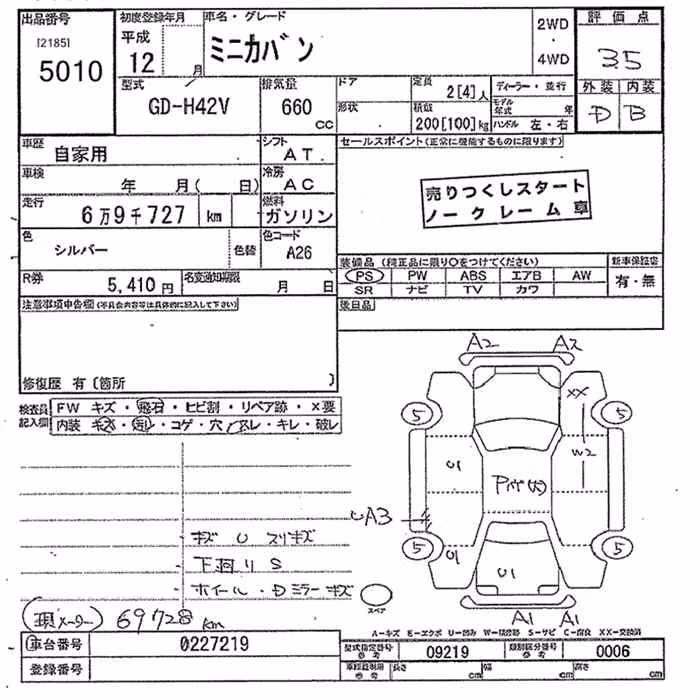 出品番号 初度登録年月 車名・グレード 2WD ・ 4WD 評価点
[2185] 5010 平成 12 月 ミニカバン 35
型式 排気量 ドア 定員 2[4]人 ディーラー・並行 外装 内装
GD-H42V 660 CC 形状 積載 200[100]kg モデル年式 年 D B
ハンドル 左・右
車歴 自家用 シフト AT セールスポイント(正常に機能するものに限ります)
車検 年 月( 日) 冷房 AC
走行 6万9千727 km 燃料 ガソリン
売りつくしスタート
ノークレーム車
色 シルバー 色替 色コード A26
装備品(純正品に限り○をつけてください) 新車保証書
R券 5,410円 名変通知期限 月 日
PS PW ABS エアB AW 有・無
SR ナビ TV カワ
注意事項申告欄(不具合内容等は具体的に記入して下さい)
後日品
修復歴 有〔箇所 〕
検査員記入欄 FW キズ・飛石・ヒビ割・リペア跡・X要
内装 キズ・汚レ・コゲ・穴・スレ・キレ・破レ
A2 A2
XX
5 5
U1 W2
UA3
キズ U スリキズ
下回り S
ホイール・Dミラーキズ
5 U1 U1 5
スペア
A1 A1
(現メーター) 69728 km
A-キズ E-エクボ U-凹み W-補修跡 S-サビ C-腐食 XX-交換済
車台番号 0227219
型式指定番号 参考 09219 類別区分番号 参考 0006
登録番号
車検証制限 参考 長さ cm 幅 cm 高さ cm